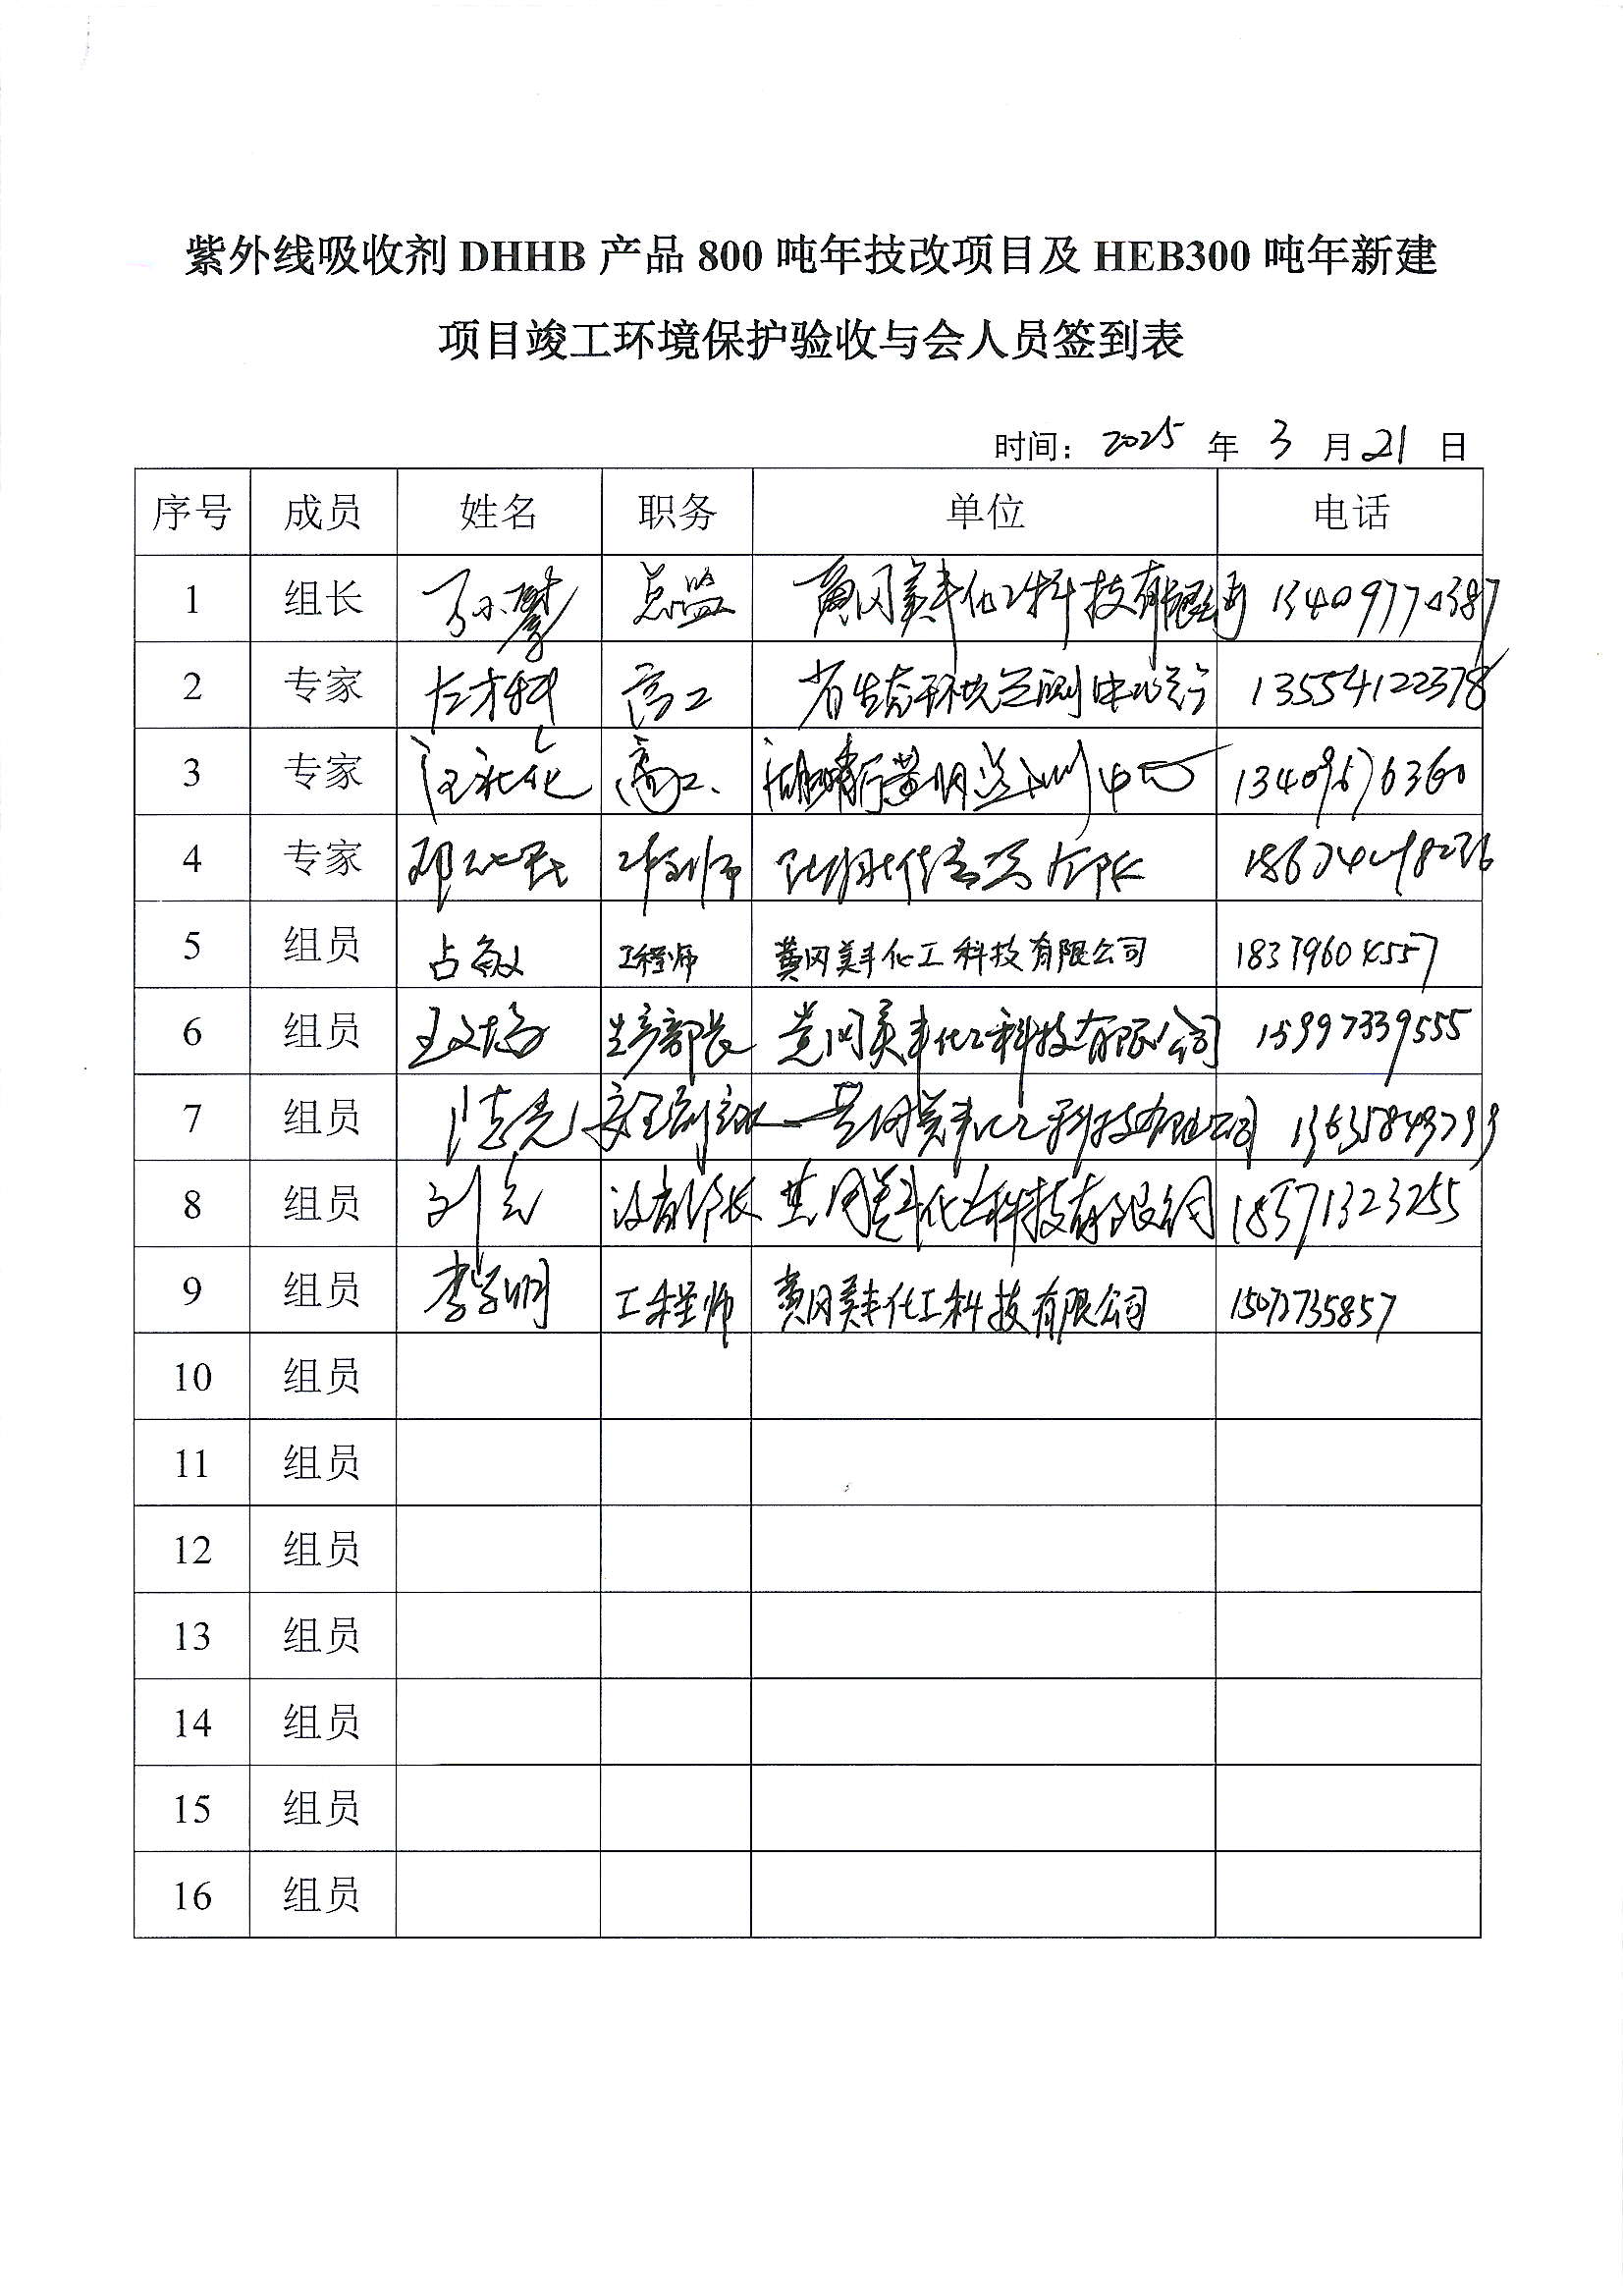 紫外线吸收剂 DHHB 产品 800 吨年技改项目及 HEB300 吨年新建
项目竣工环境保护验收与会人员签到表
时间: 2025 年 3 月 21 日
序号 成员 姓名 职务 单位 电话
1 组长 总监 黄冈美丰化工科技有限公司 13409770387
2 专家 左才科 高工 省生态环境监测中心站 13554122378
3 专家 高工 13409676360
4 专家 工程师
5 组员 占敏 工程师 黄冈美丰化工科技有限公司 18379604557
6 组员 生产部长 黄冈美丰化工科技有限公司 15997339555
7 组员 黄冈美丰化工科技有限公司 13635849799
8 组员 设备部长 黄冈美丰化工科技有限公司 18571323255
9 组员 李学明 工程师 黄冈美丰化工科技有限公司 15072735857
10 组员
11 组员
12 组员
13 组员
14 组员
15 组员
16 组员